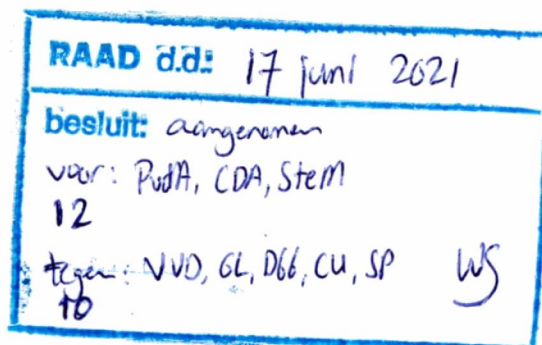 RAAD d.d.: 17 juni 2021
besluit: aangenomen
voor: PvdA, CDA, SteM
12
tegen: VVD, GL, D66, CU, SP WS
10